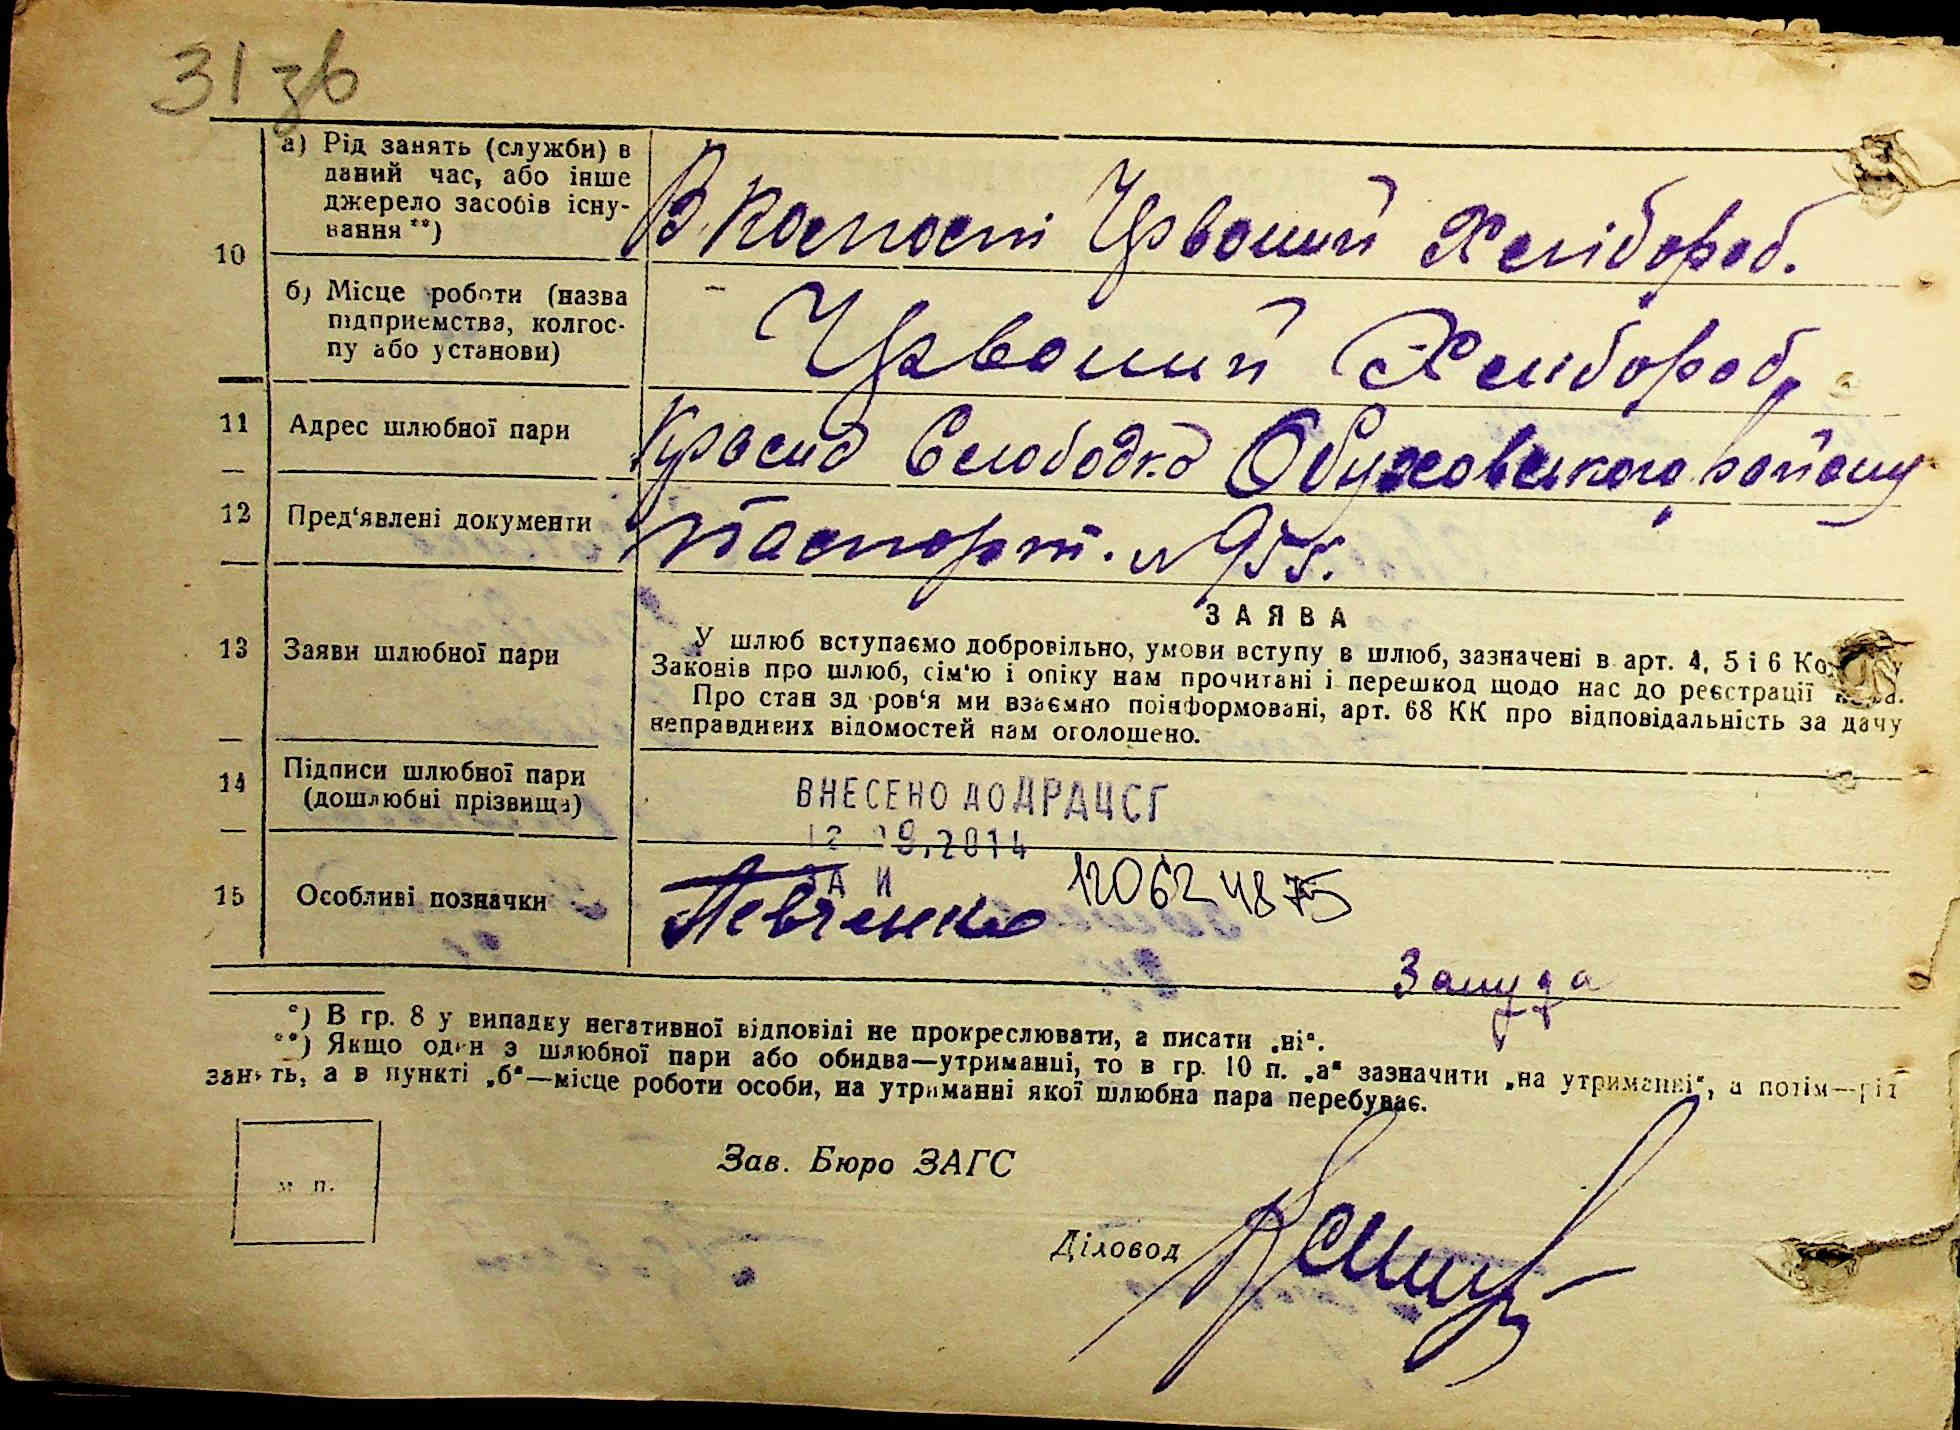 31 зв
а) Рід занять (служби) в
даний час, або інше
джерело засобів існу-
вання **)
В Колгоспі Чрвоний Хлібороб.
10
б) Місце роботи (назва
підприємства, колгос-
пу або установи)
Чрвоний Хлібороб,
11 Адрес шлюбної пари
Красна Слободка Обуховського району
12 Пред'явлені документи
Паспорт. № 955.
13 Заяви шлюбної пари
ЗАЯВА
У шлюб вступаємо добровільно, умови вступу в шлюб, зазначені в арт. 4, 5 і 6
Законів про шлюб, сім'ю і опіку нам прочитані і перешкод щодо нас до реєстрації
Про стан здоров'я ми взаємно поінформовані, арт. 68 КК про відповідальність за дачу
неправдивих відомостей нам оголошено.
14 Підписи шлюбної пари
(дошлюбні прізвища)
ВНЕСЕНО ДО ДРАЦСГ
12.09.2014
15 Особливі позначки
Левченко 12062 4875
Зануда
*) В гр. 8 у випадку негативної відповіді не прокреслювати, а писати „ні".
**) Якщо один з шлюбної пари або обидва—утриманці, то в гр. 10 п. „а" зазначити „на утриманні", а потім—рід
занять, а в пункті „б"—місце роботи особи, на утриманні якої шлюбна пара перебуває.
м п.
Зав. Бюро ЗАГС
Діловод